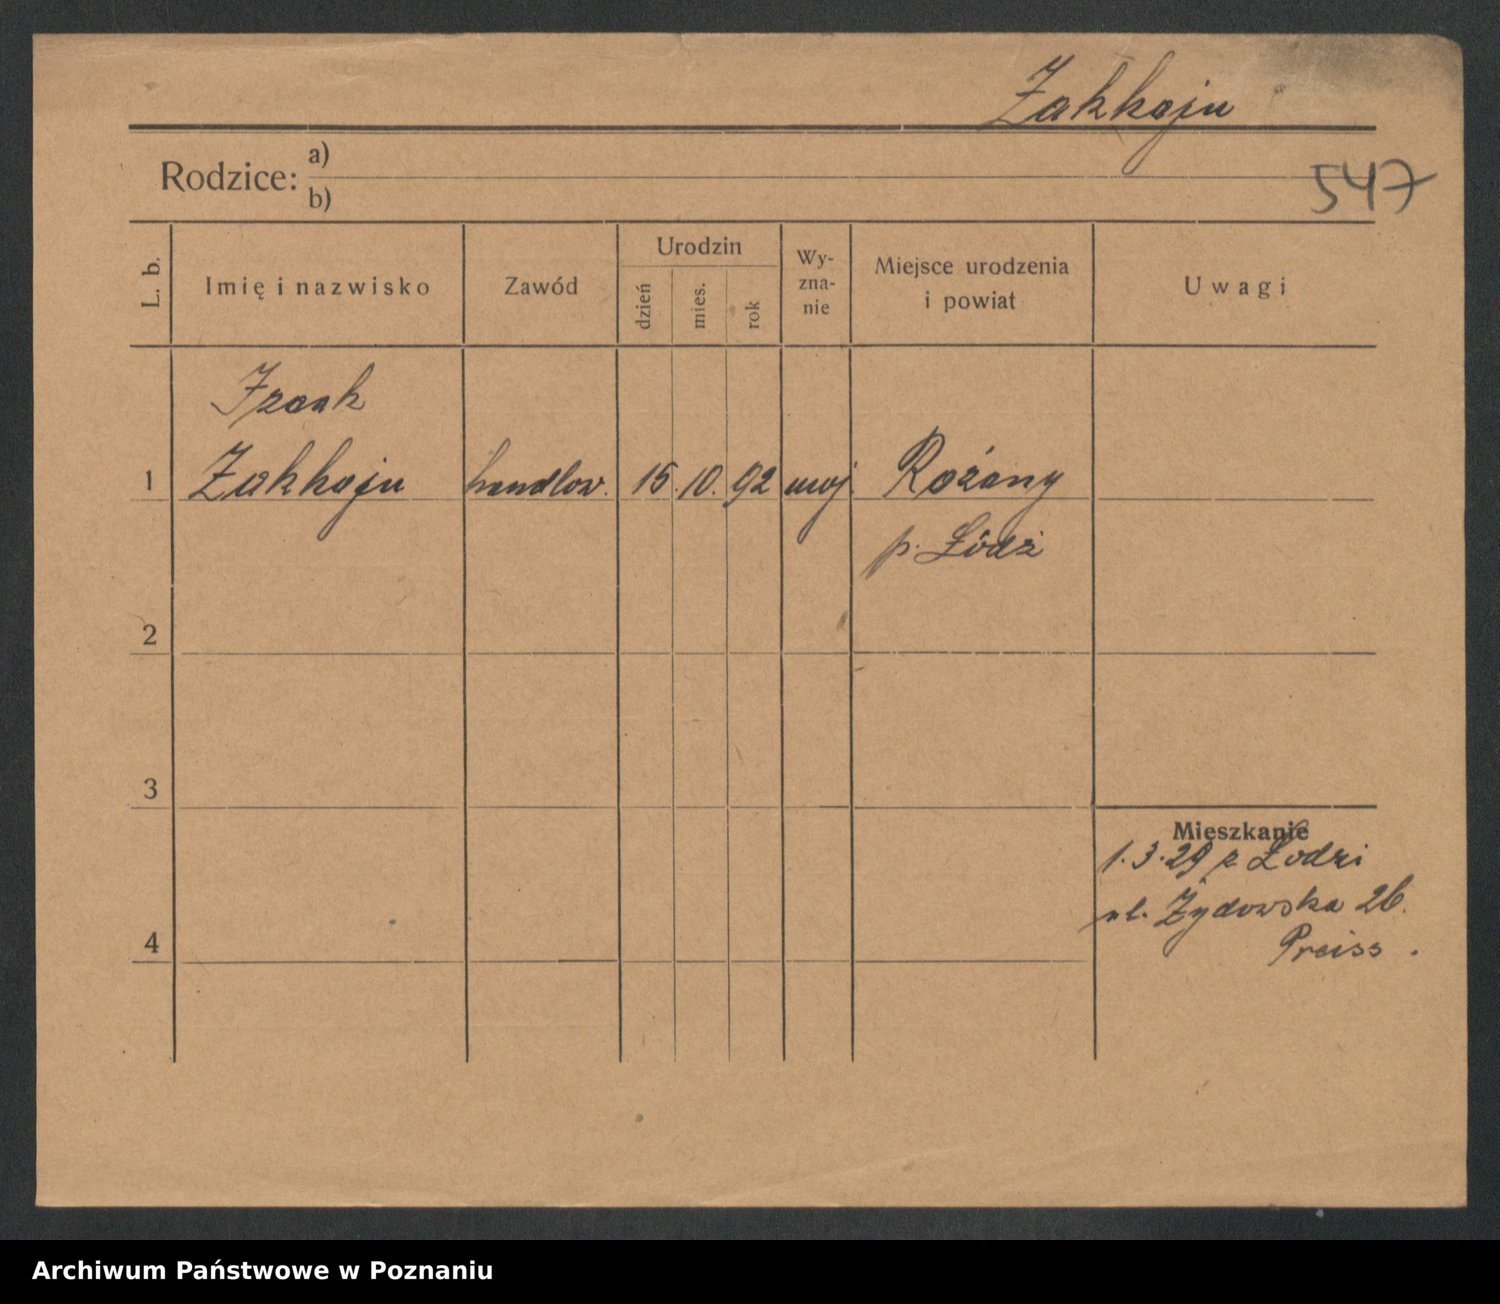 Zakhaju
Rodzice:
a)
b)
547
L. b.
Imię i nazwisko
Zawód
Urodzin
dzień
mies.
rok
Wy-
zna-
nie
Miejsce urodzenia
i powiat
Uwagi
Izaak
1 Zakhaju handlow. 15. 10. 92 moj Rożany
p. Łódź
2
3
Mieszkanie
1.3.29 z Łodzi
ul. Żydowska 26.
4
Preiss.
Archiwum Państwowe w Poznaniu